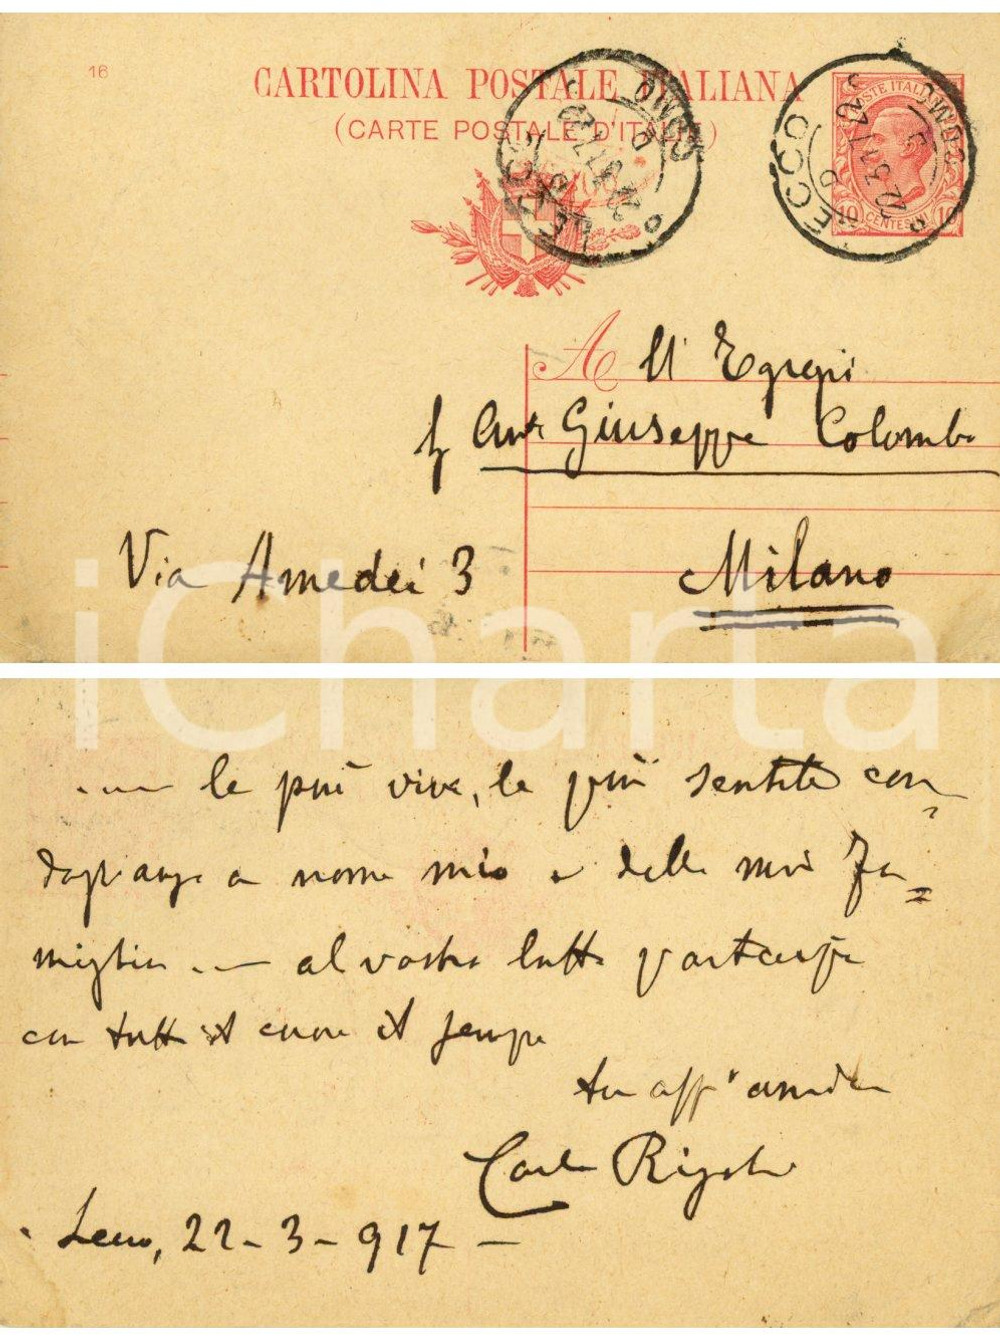 16
CARTOLINA POSTALE ITALIANA
(CARTE POSTALE D'ITALIE)
LECCO
COMO
LECCO
COMO
POSTE ITALIANE
10 CENTESIMI 10
A ll' Egregi
Giuseppe Colombo
Via Amedei 3
Milano
iCharta
le più vive, le più sentite con=
doglianze a nome mio e della mia Fa=
miglia al vostro lutto partecipe
con tutto il cuore il sempre
tuo aff° amico
Carlo
Lecco, 22-3-917-